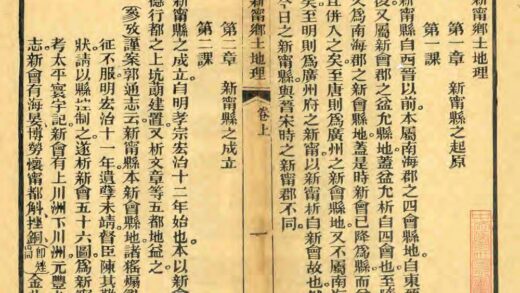 新甯鄉土地理
第一章　新甯縣之起原
第一課
新甯縣自西晉以前本屬南海郡之四會縣地自東晉
後又屬新會郡之盆允縣地蓋盆允析自四會也至隋
又爲南海郡之新會縣地蓋是時新會已降爲縣而
且併入之矣至唐則爲廣州之新會縣地又不屬南海
矣至明則爲廣州府之新甯以新甯析自新會故也
今日之新甯縣與晉宋時之新甯郡不同
卷上
一
第二章　新甯縣之成立
第二課
新甯縣之成立自明孝宗宏治十二年始也本以新會
德行都之上坑蓢建置又析文章等五都地益之
參攷謹案郭通志云新甯縣本新會縣地諸猺煽
征不服明宏治十一年遺孽未靖督臣陳其
狀請以縣控制之遂析新會五十六圖爲新
考太平寰宇記新會有上川洲下川洲元豐
志新會有海晏博勞懷甯都斛挫銅